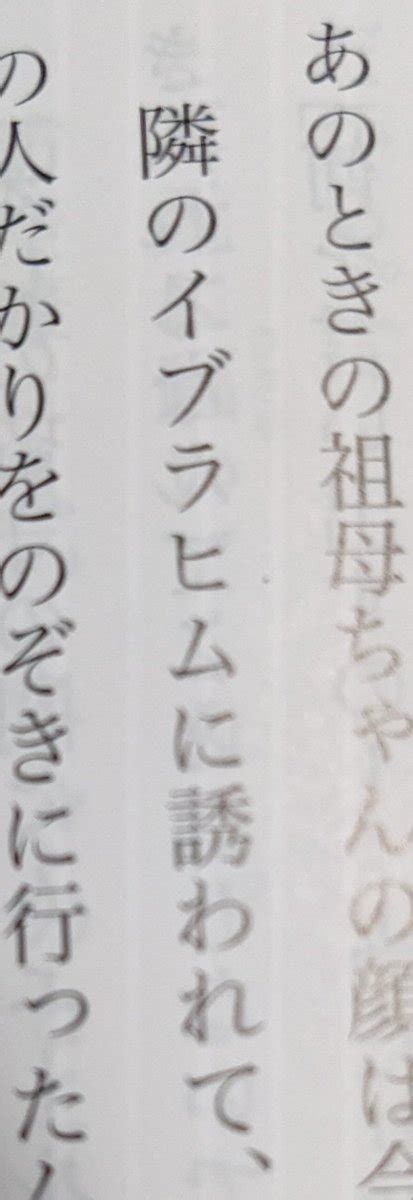 あのときの祖母ちゃんの顔は今
隣のイブラヒムに誘われて、
の人だかりをのぞきに行った